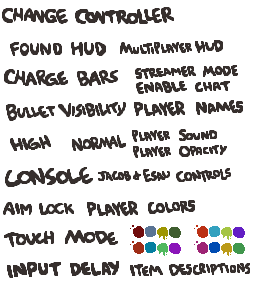 CHANGE CONTROLLER
FOUND HUD MULTIPLAYER HUD
CHARGE BARS STREAMER MODE
ENABLE CHAT
BULLET VISIBILITY PLAYER NAMES
HIGH NORMAL PLAYER SOUND
PLAYER OPACITY
CONSOLE JACOB & ESAU CONTROLS
AIM LOCK PLAYER COLORS
TOUCH MODE
INPUT DELAY ITEM DESCRIPTIONS